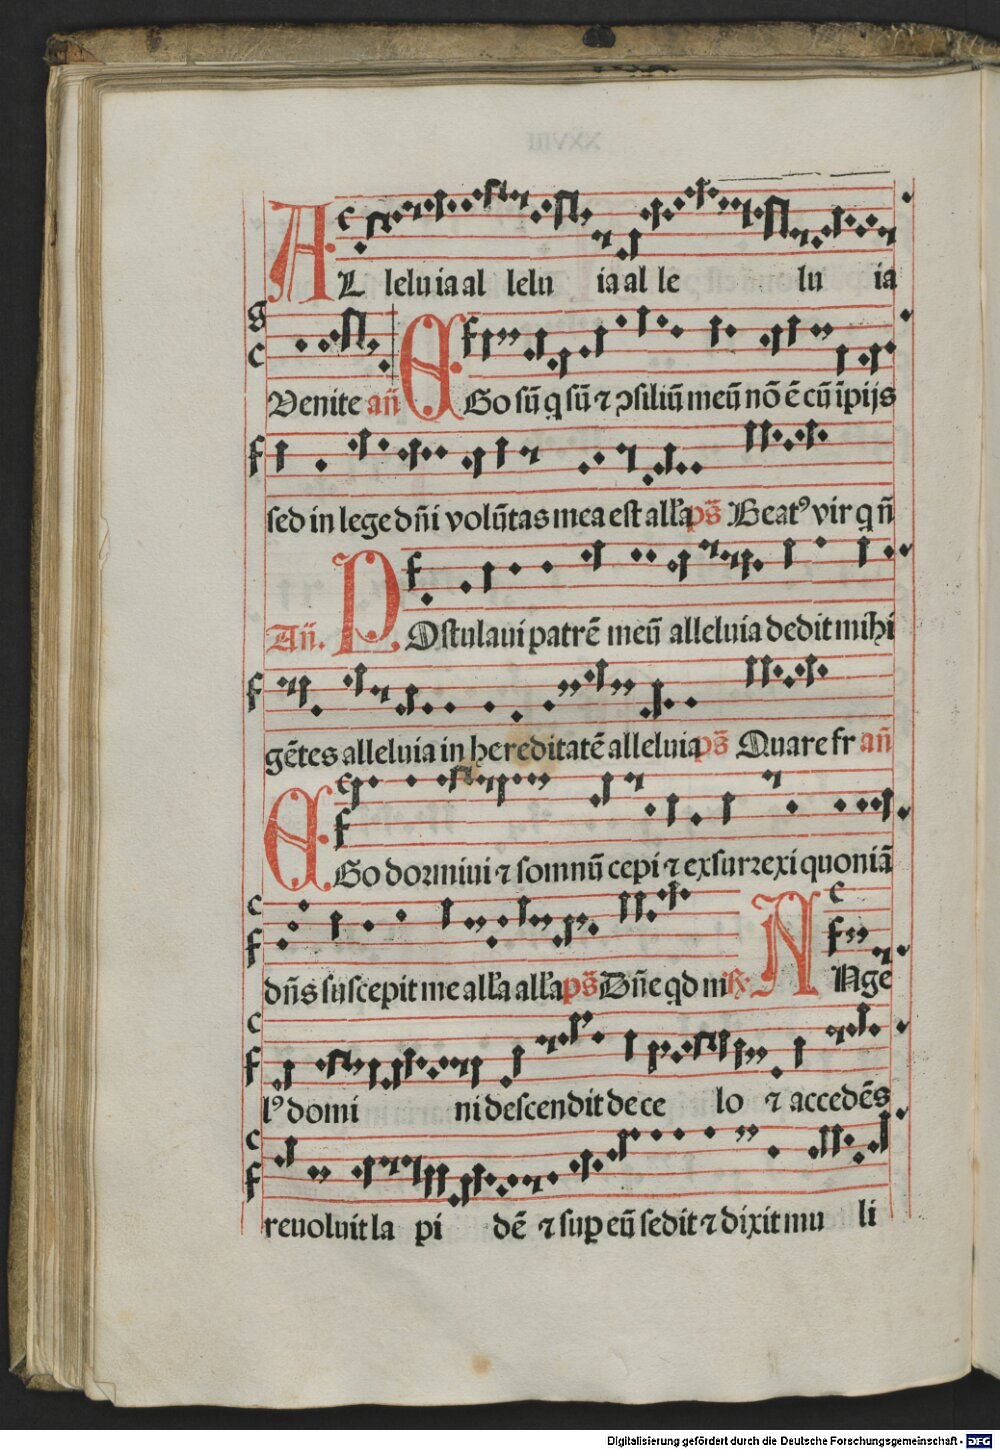 AL leluia al lelu ia al le lu ia
Venite añ EGo sū q sū ⁊ ɔsiliū meū nō ē cū īpijs
sed in lege dñi volūtas mea est all'a ps̄ Beatꝰ vir q ñ
Añ. POstulaui patrē meū alleluia dedit mihi
gētes alleluia in hereditatē alleluia ps̄ Quare fr añ
EGo dormiui ⁊ somnū cepi ⁊ exsurrexi quoniā
dñs suscepit me all'a all'a ps̄ Dñe qd m ℟ ANge
lꝰ domi ni descendit de ce lo ⁊ accedēs
reuoluit la pi dē ⁊ suꝑ eū sedit ⁊ dixit mu li
Digitalisierung gefördert durch die Deutsche Forschungsgemeinschaft - DFG